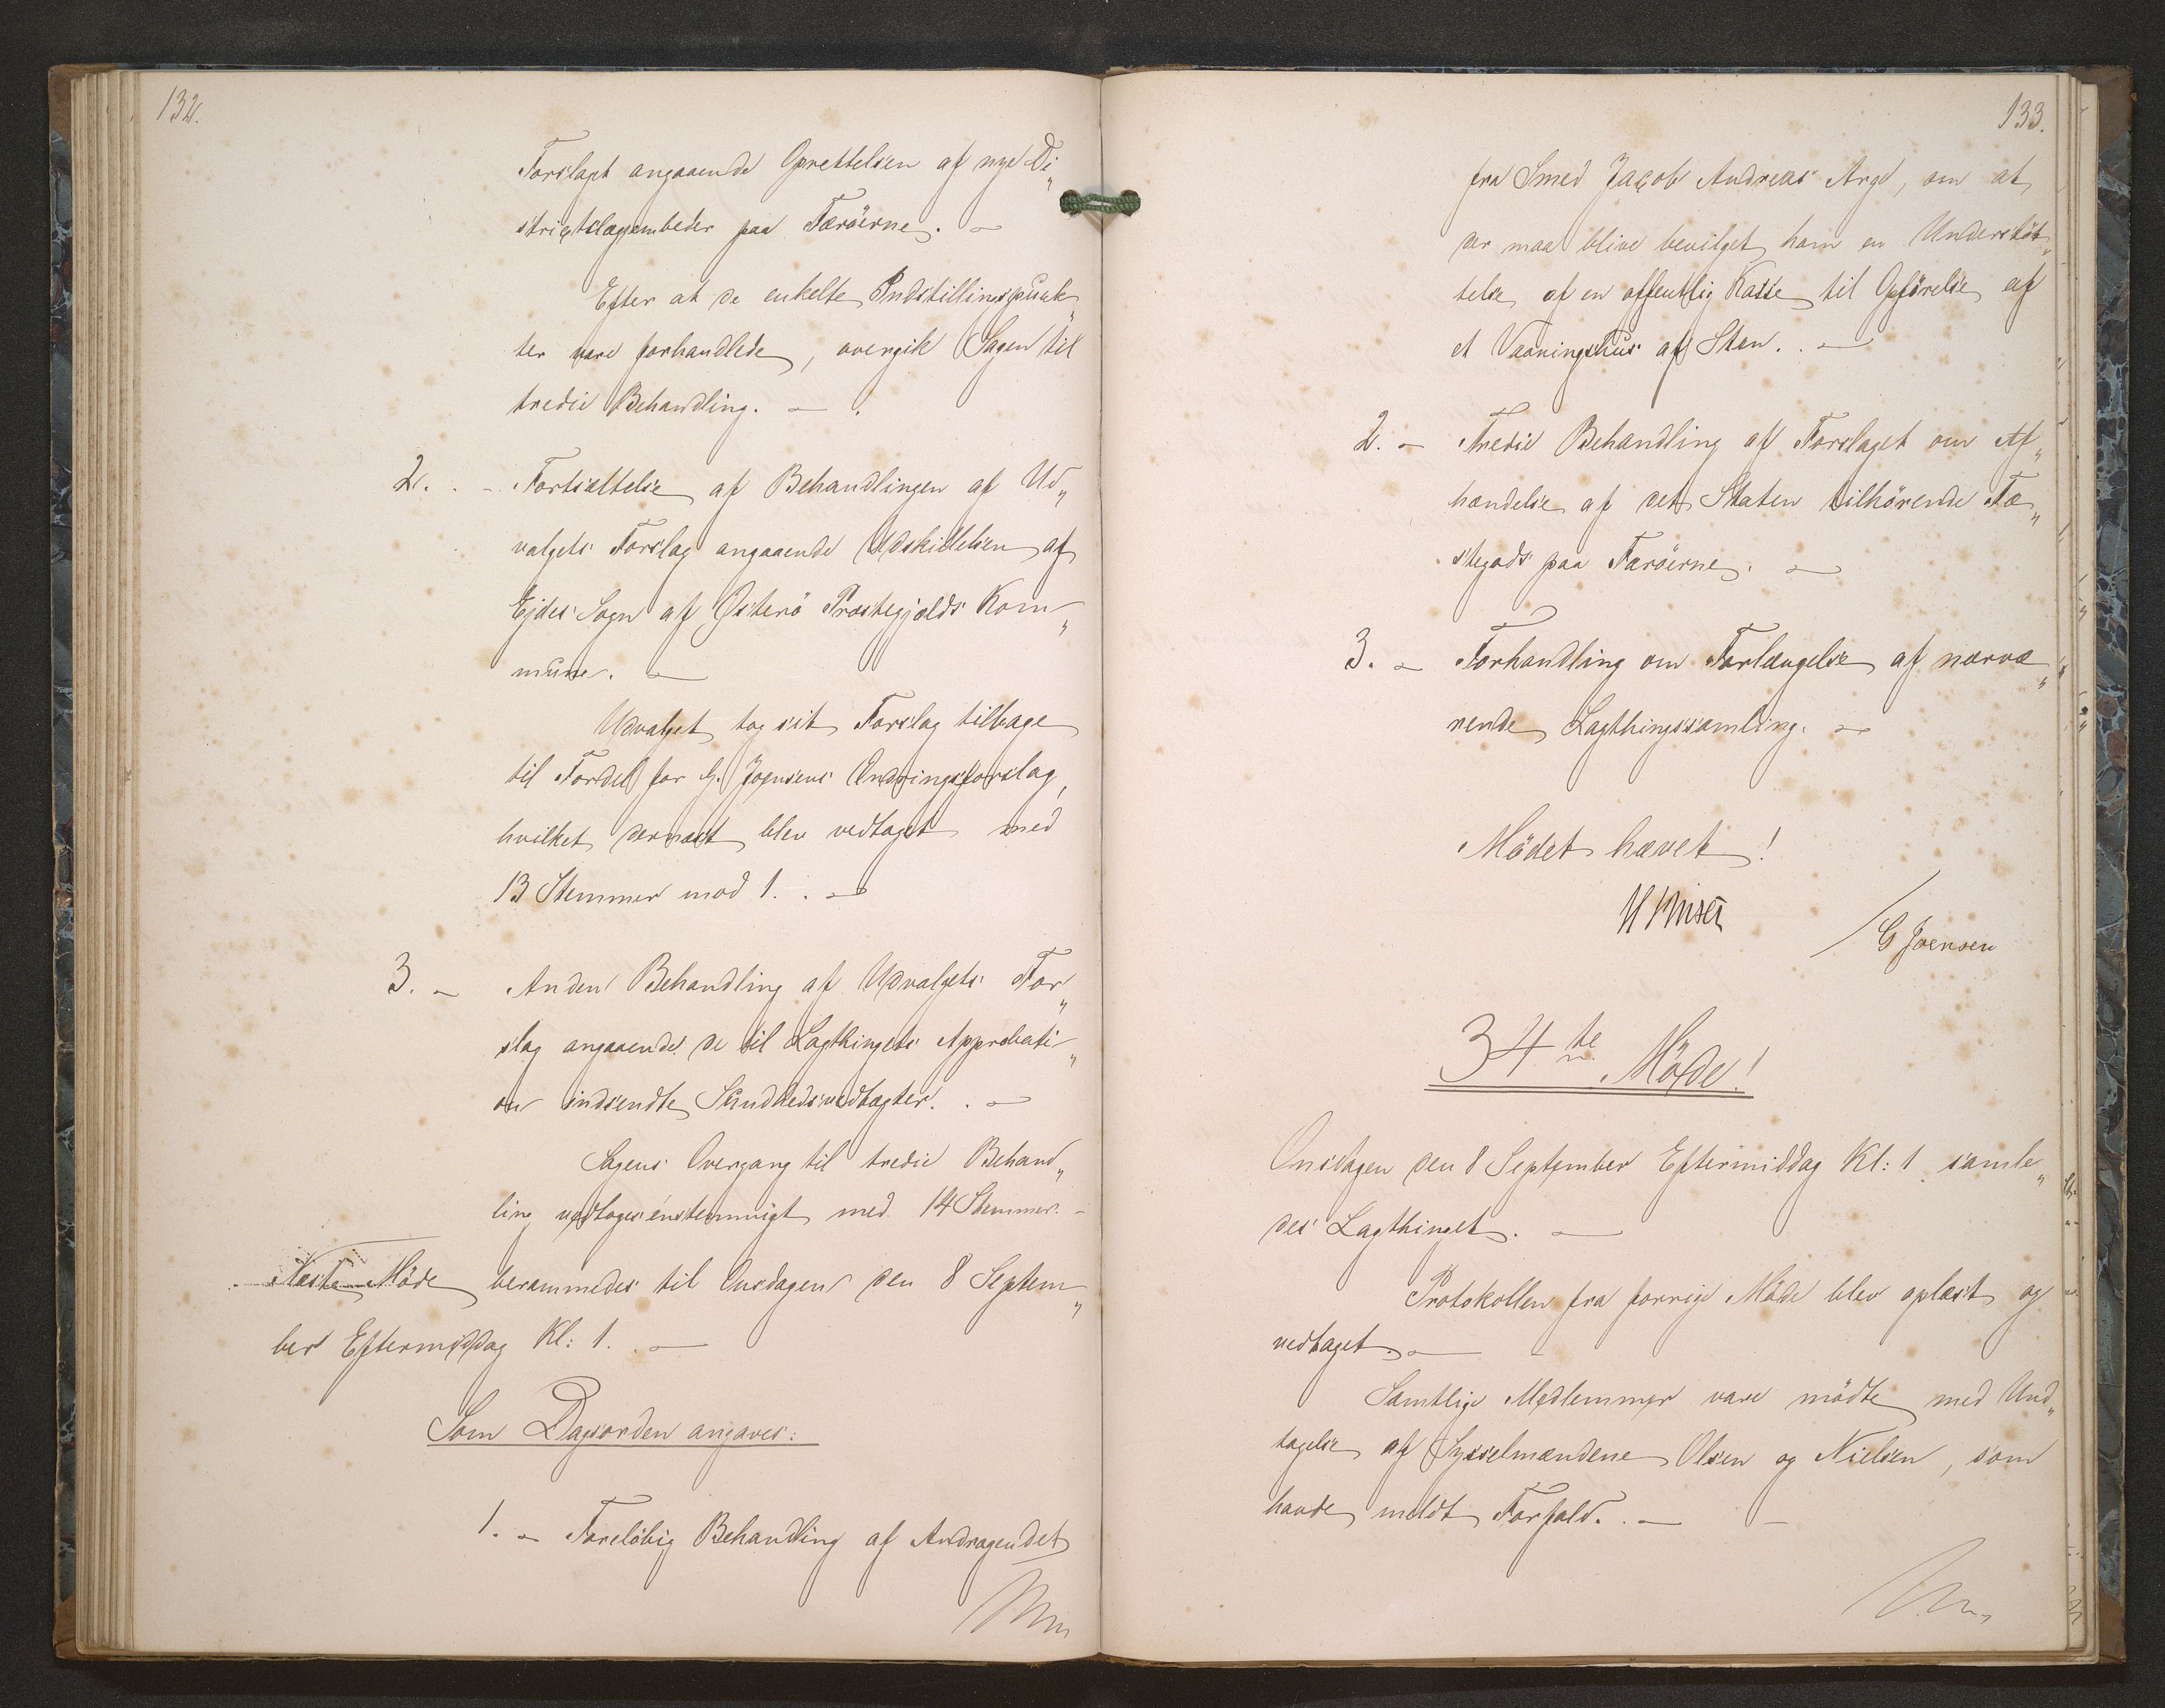 132.
Forslaget angaaende Oprettelsen af nye Di„
strictslægeembeder paa Færöerne. –
Efter at de enkelte Indstillingspunk„
ter vare forhandlede, overgik Sagen til
tredie Behandling. – .
2. – Fortsættelse af Behandlingen af Ud„
valgets Forslag angaaende Udskillelsen af
Ejdes Sogn af Österö Præstegjælds Kom„
mune. –
Udvalget tog sit Forslag tilbage
til Fordel for G. Joensens Ændringsforslag,
hvilket dernæst blev vedtaget med
13 Stemmer mod 1. . –
3. – Anden Behandling af Udvalgets For„
slag angaaende de til Lagthingets Approbati„
on indsendte Sundhedsvedtægter. . –
Sagens Overgang til tredie Behand„
ling vedtoges énstemmigt med 14 Stemmer. –
Næste Möde berammedes til Onsdagen den 8 Septem„
ber Eftermiddag Kl: 1. . –
Som Dagsorden angaves:
1. – Foreløbig Behandling af Andragendet
133.
fra Smed Jacob Andreas Arge, om at
der maa blive bevilget ham en Understöt„
telse af en offentlig Kasse til Opförelse af
et Vaaningshus af Sten. . –
2. – Tredie Behandling af Forslaget om Af„
hændelse af det Staten tilhörende Fæ„
stegods paa Færöerne. –
3. – Forhandling om Forlængelse af nærvæ„
rende Lagthingssamling. –
Mödet hævet!
/ G Joensen
34te Möde!
Onsdagen den 8 September Eftermiddag Kl: 1 samle„
des Lagthinget. –
Protokollen fra forrige Möde blev oplæst og
vedtaget. –
Samtlige Medlemmer vare mödte med Und„
tagelse af Sysselmændene Olsen og Nielsen, som
havde meldt Forfald. . –